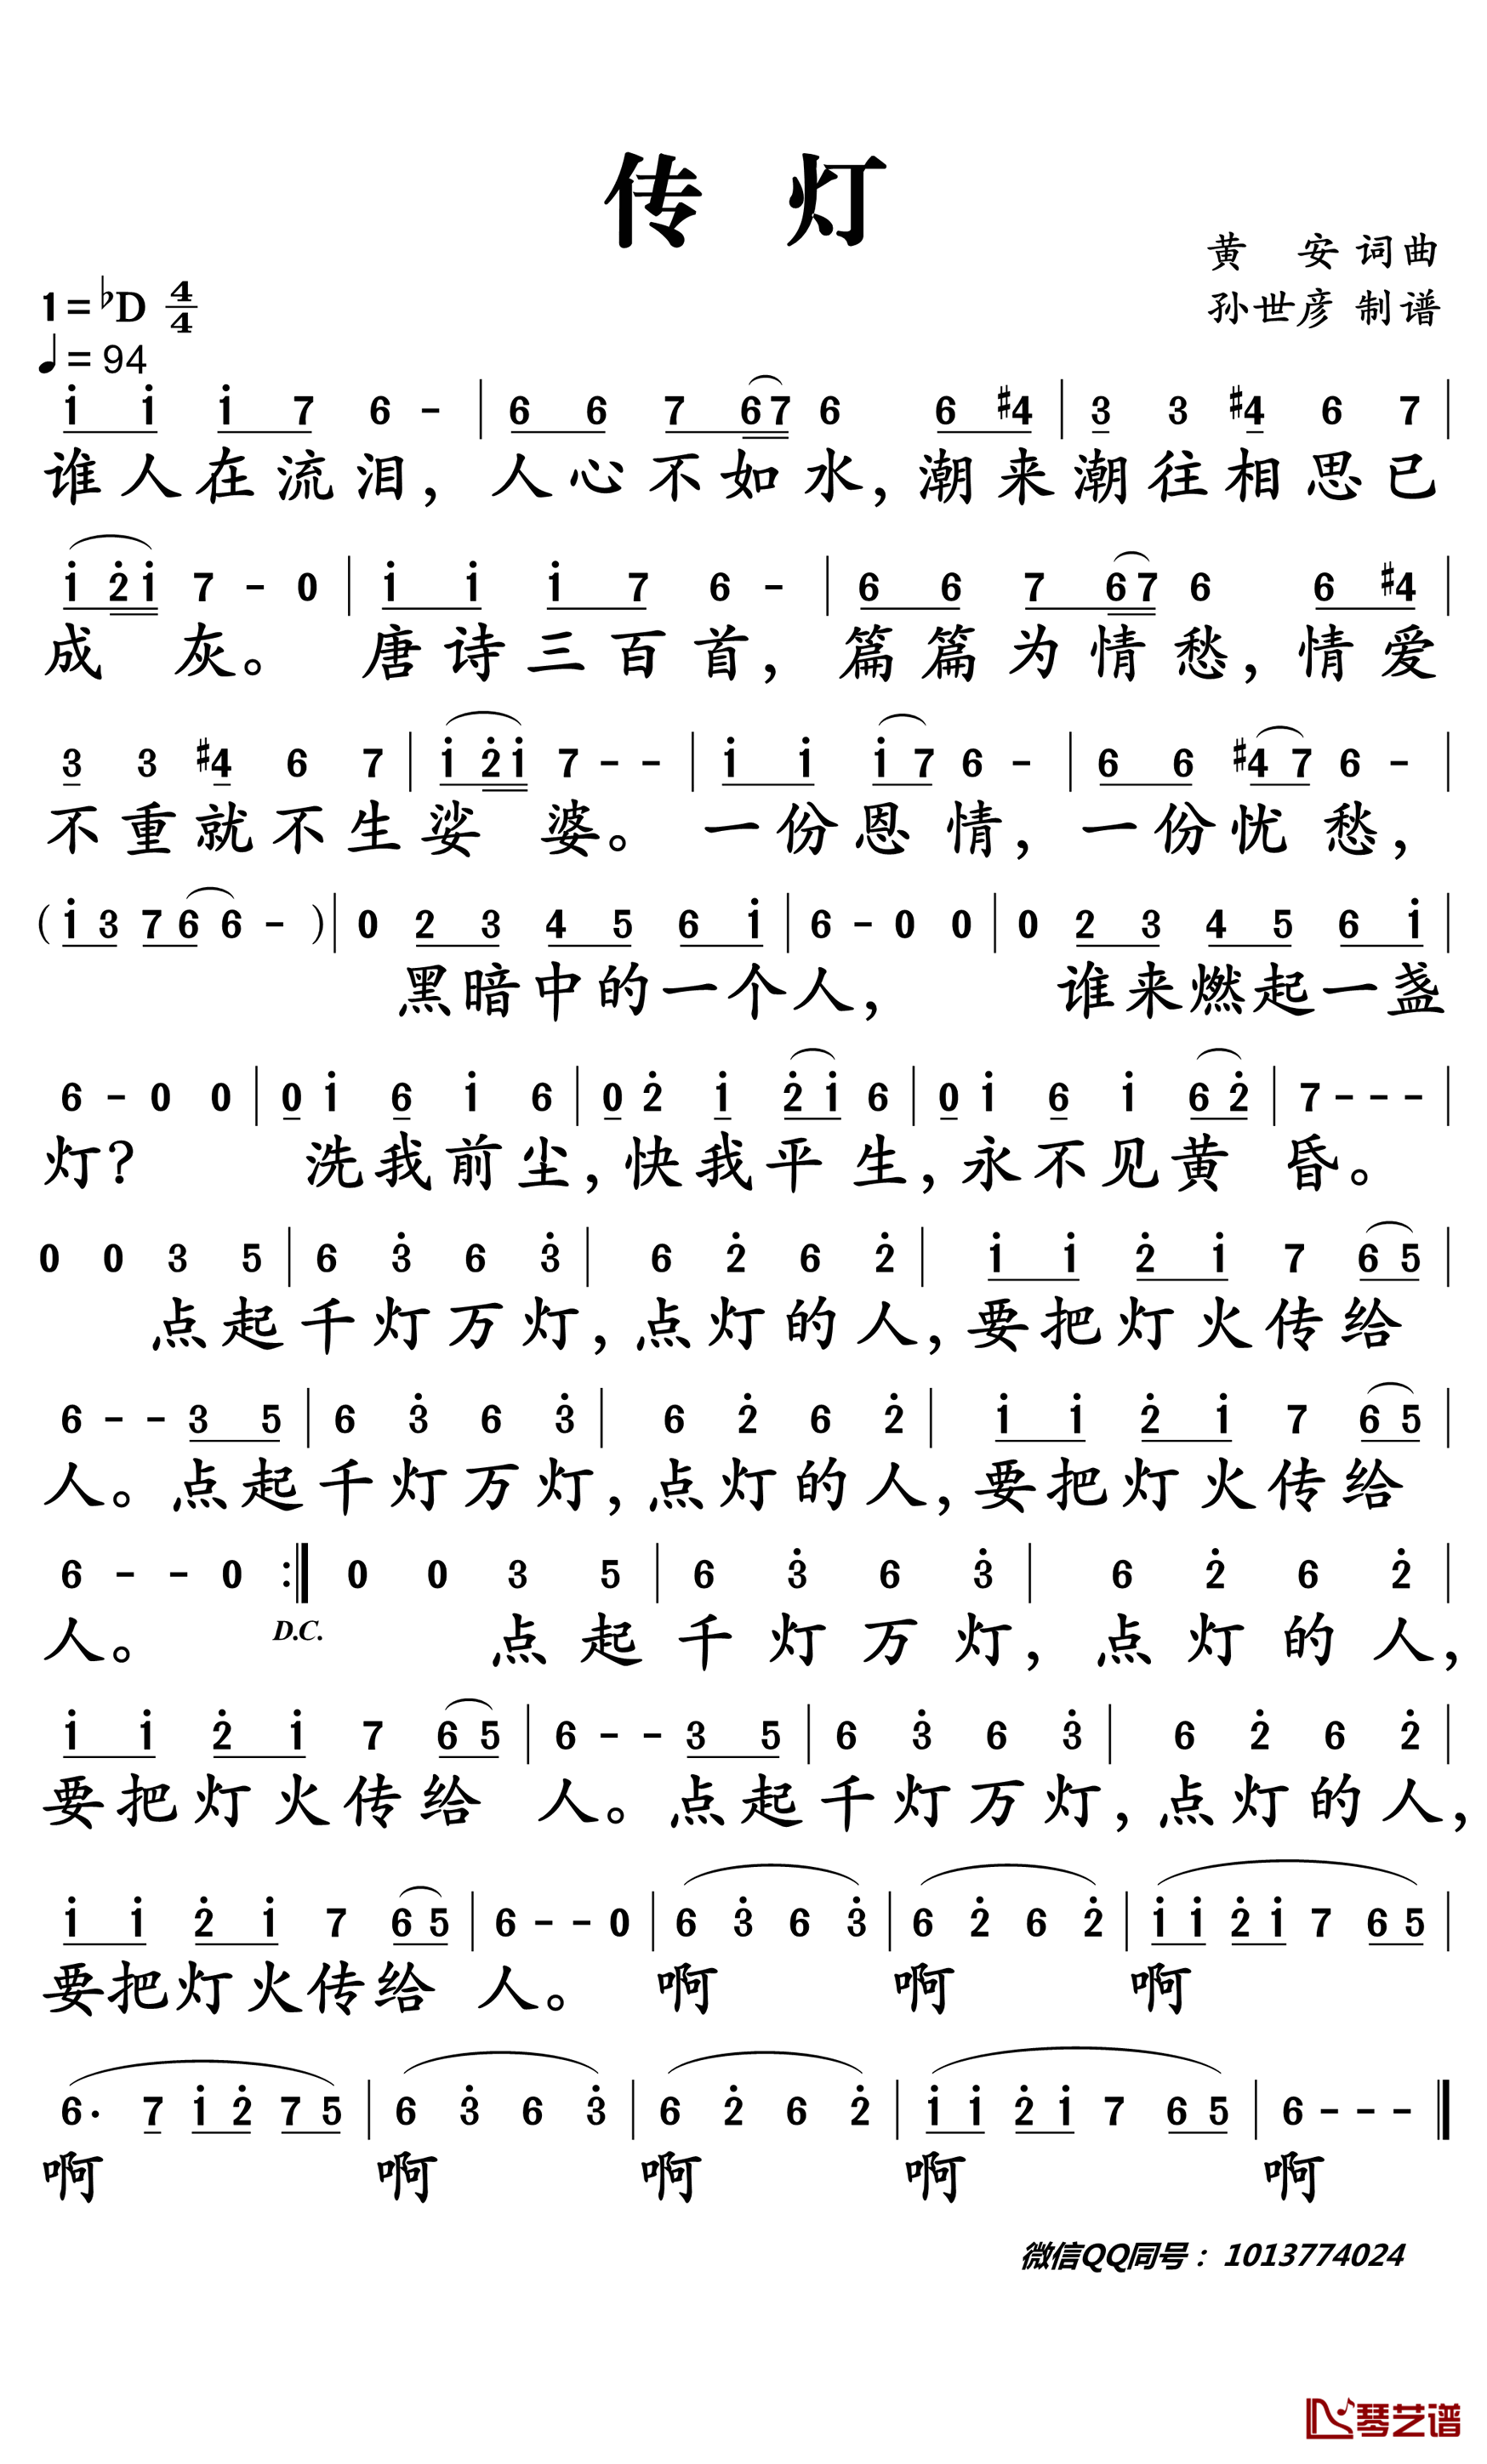 传 灯
黄 安 词曲
孙世彦 制谱
1=♭D 4/4
♩=94
i i i 7 6 - | 6 6 7 67 6 6 #4 | 3 3 #4 6 7 |
谁人在流泪，人心不如水，潮来潮往相思已
i 2̇ i 7 - 0 | i i i 7 6 - | 6 6 7 67 6 6 #4 |
成 灰。 唐诗三百首，篇篇为情愁，情爱
3 3 #4 6 7 | i 2̇ i 7 - - | i i i 7 6 - | 6 6 #4 7 6 - |
不重就不生娑 婆。 一份恩情，一份忧愁，
( i 3 7 6 6 - ) | 0 2 3 4 5 6 i | 6 - 0 0 | 0 2 3 4 5 6 i |
黑暗中的一个人， 谁来燃起一盏
6 - 0 0 | 0 i 6 i 6 | 0 2̇ i 2̇ i 6 | 0 i 6 i 6 2̇ | 7 - - - |
灯？ 洗我前尘，快我平生，永不见黄 昏。
0 0 3 5 | 6 3̇ 6 3̇ | 6 2̇ 6 2̇ | i i 2̇ i 7 6 5 |
点起千灯万灯，点灯的人，要把灯火传给
6 - - 3 5 | 6 3̇ 6 3̇ | 6 2̇ 6 2̇ | i i 2̇ i 7 6 5 |
人。点起千灯万灯，点灯的人，要把灯火传给
6 - - 0 :‖ 0 0 3 5 | 6 3̇ 6 3̇ | 6 2̇ 6 2̇ |
人。 D.C. 点起千灯万灯，点灯的人，
i i 2̇ i 7 6 5 | 6 - - 3 5 | 6 3̇ 6 3̇ | 6 2̇ 6 2̇ |
要把灯火传给 人。点起千灯万灯，点灯的人，
i i 2̇ i 7 6 5 | 6 - - 0 | 6 3̇ 6 3̇ | 6 2̇ 6 2̇ | i i 2̇ i 7 6 5 |
要把灯火传给 人。 啊 啊 啊
6· 7 i 2̇ 7 5 | 6 3̇ 6 3̇ | 6 2̇ 6 2̇ | i i 2̇ i 7 6 5 | 6 - - - ‖
啊 啊 啊 啊 啊
微信QQ同号：1013774024
琴艺谱